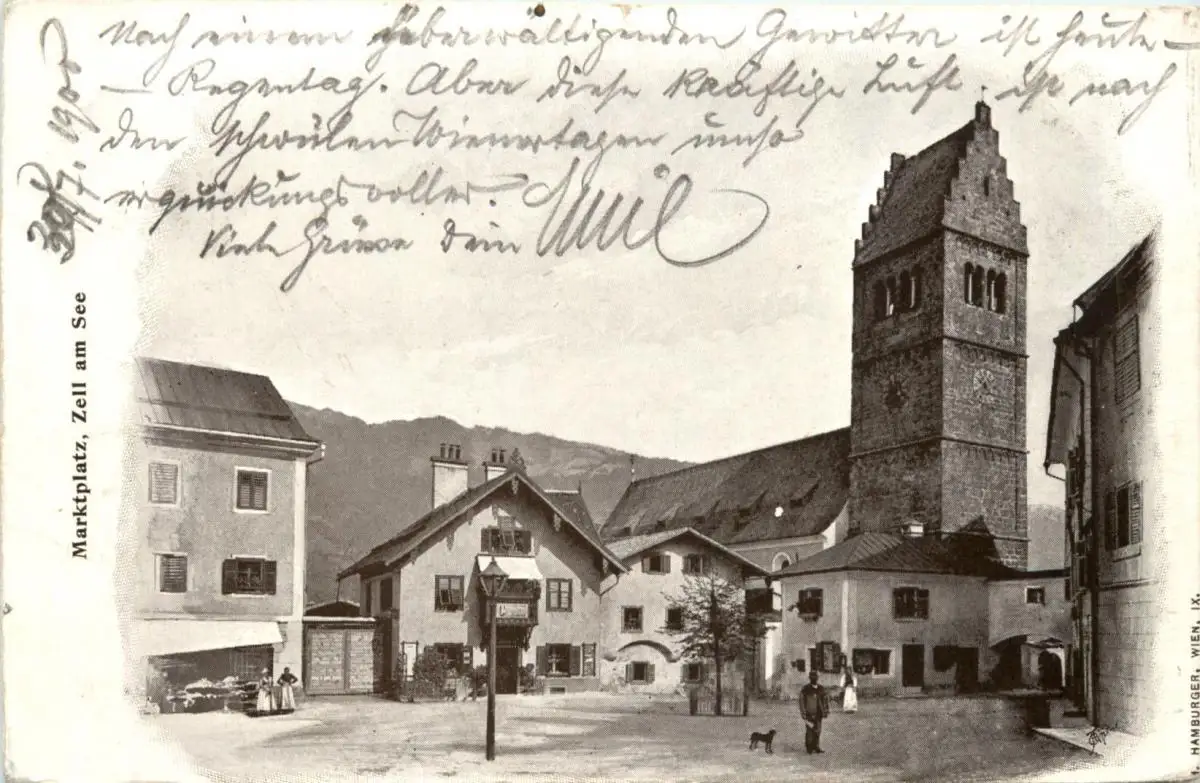 Nach einem überwältigenden Gewitter ist heute –
– Regentag. Aber diese kräftige Luft ist nach
den schwülen Wienertagen umso
erquickungsvoller.
Viele Grüsse dein Emil
30/7. 190
Marktplatz, Zell am See
HAMBURGER, WIEN, IX.